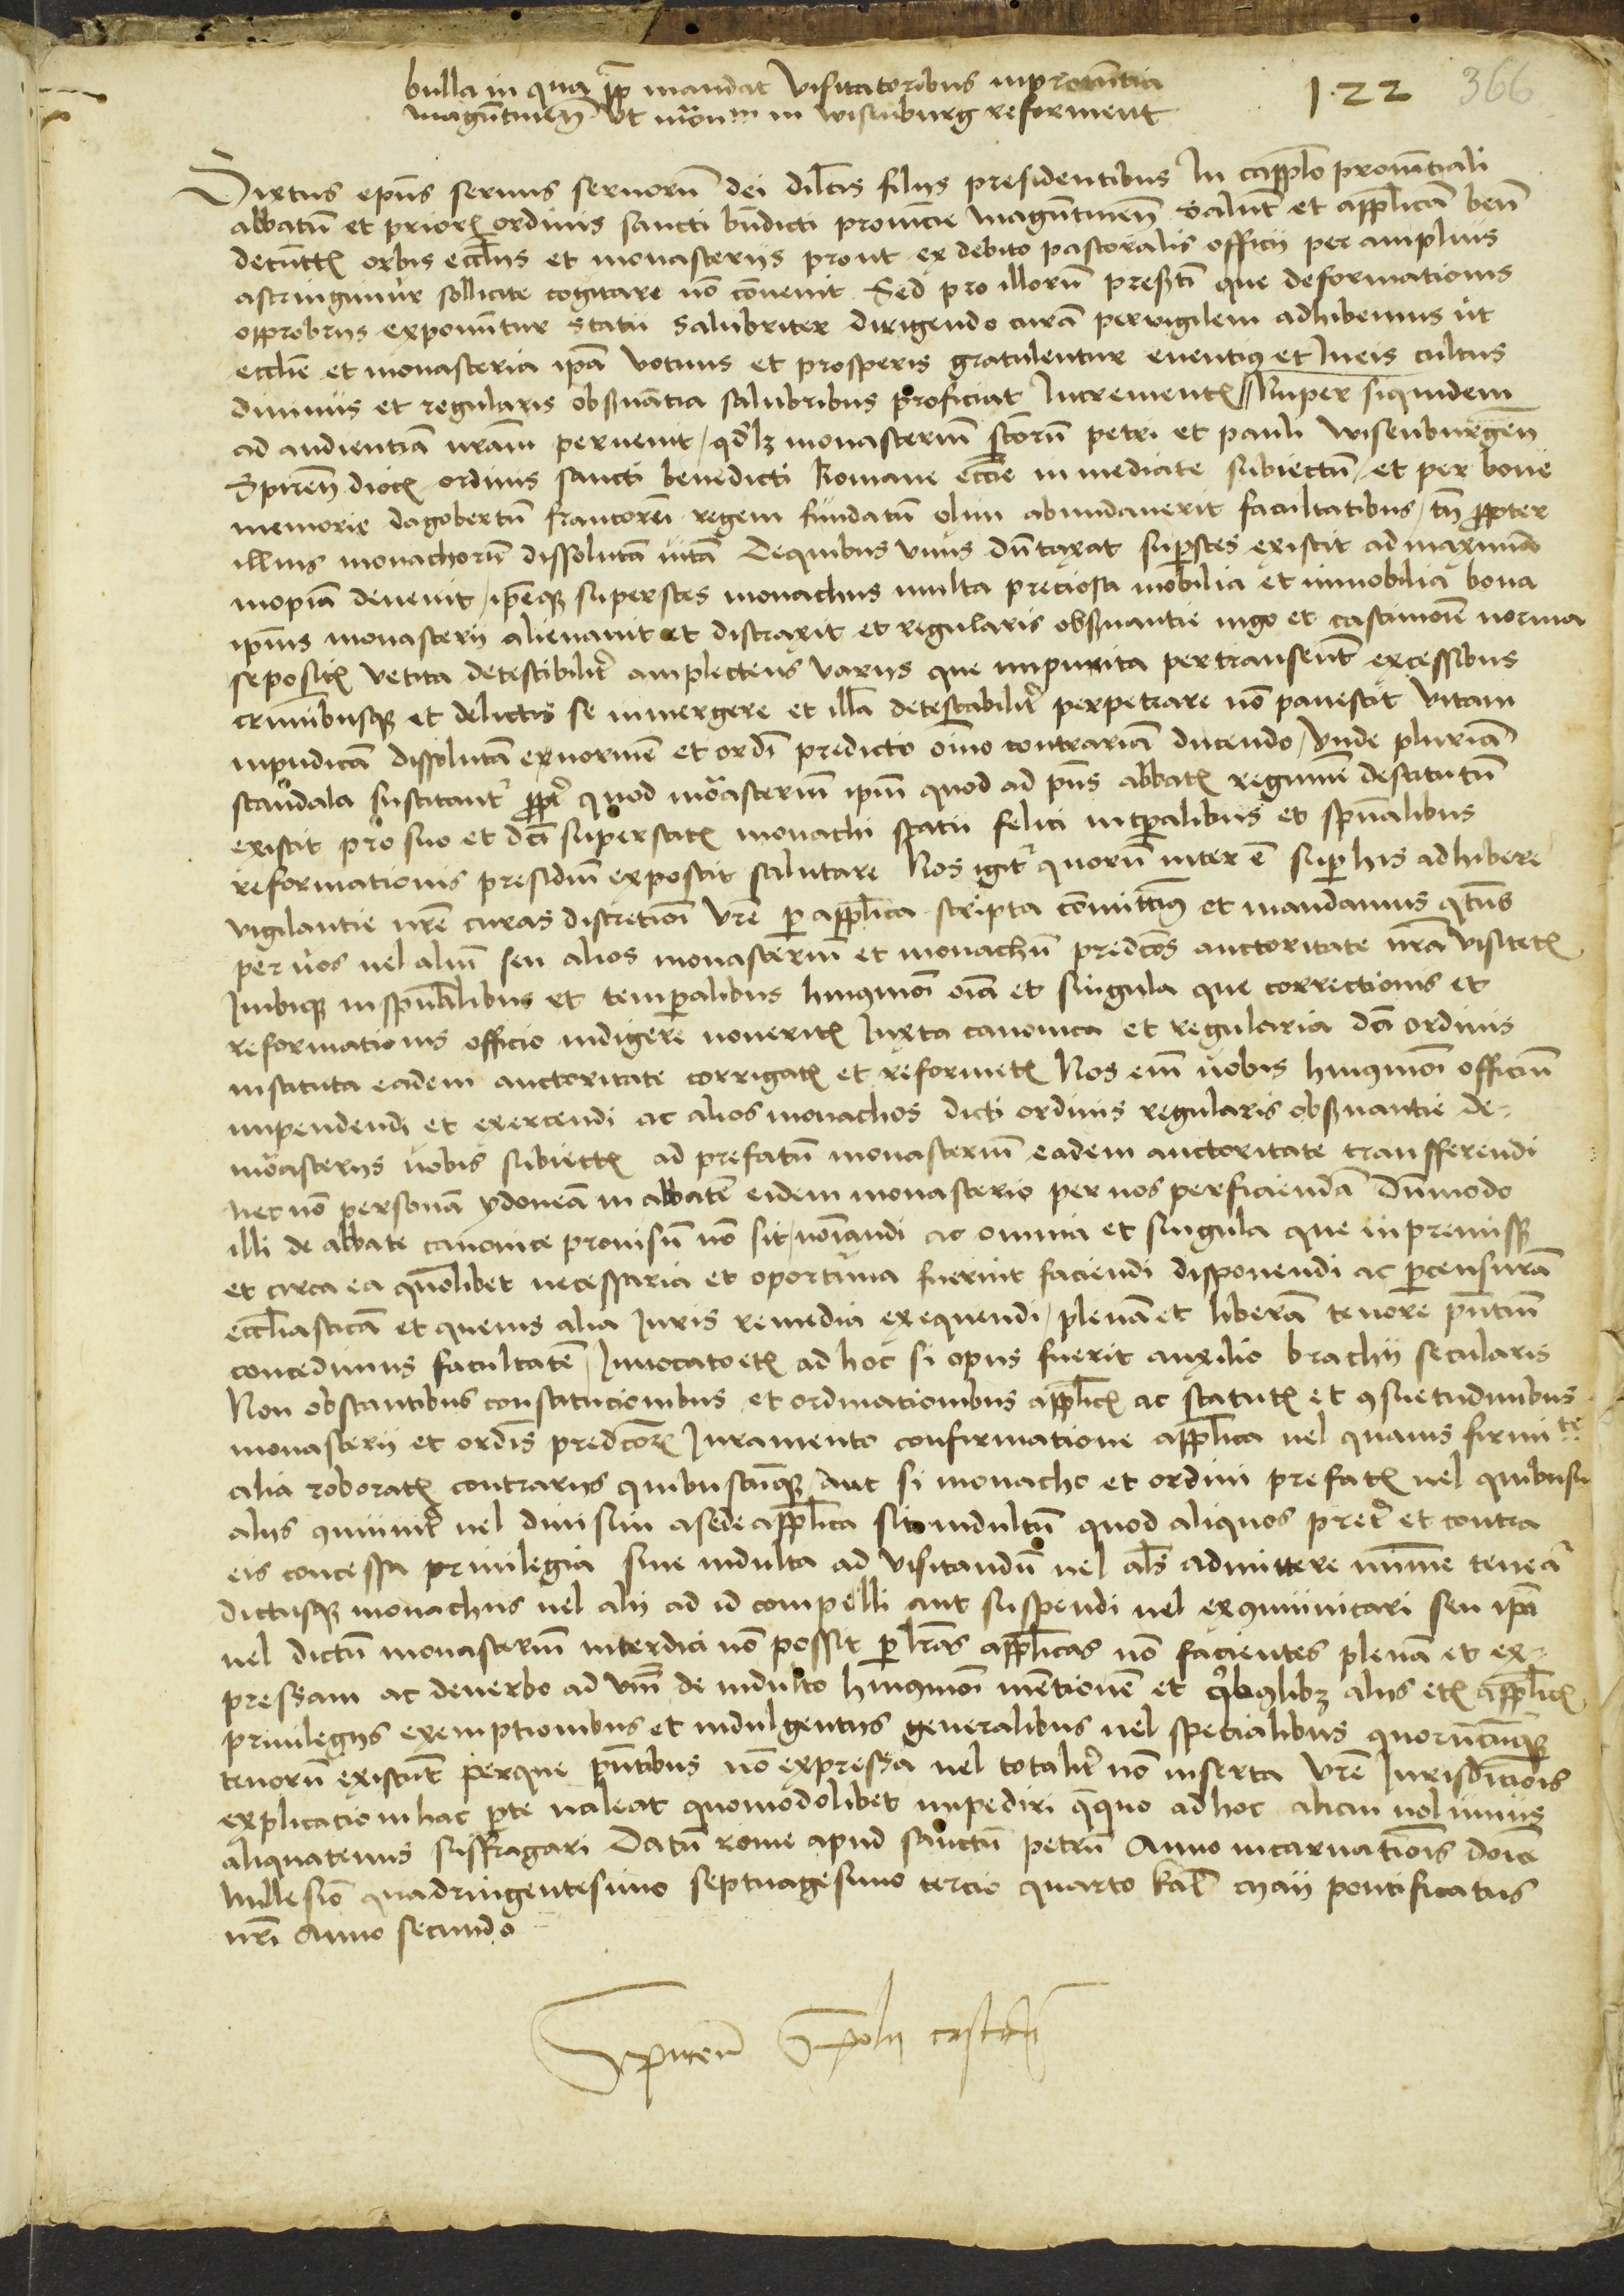 bulla in qua papa mandat visitatoribus in provintia
122 366
maguntinen̄ ut mōnm in wisenburg reforment
Sixtus ep̄us servus servorū dei dilc̄is filiis presidentibus In capp̄lo provintiali
abbatū et priorꝝ ordinis sancti bn̄dicti provincie maguntinen̄ salut̄ et app̄licā ben̄
de cunttꝭ orbis eccl̄iis et monasteriis prout ex debito pastoralis officii per amplius
astringimur sollicite cogitare nō cōvenit Sed pro illorū presertī que deformationis
opprobriis exponūtur statu salubriter dirigendo curā pervigilem adhibemus ut
ecclīe et monasteria ipā votivis et prosperis gratulentur eventibꝰ et In eis cultus
divinus et regularis obs̄vātia salubribus proficiat Incrementꝭ // Nuper siquidem
ad audientiā nrām pervenit / qd' lꝫ monasteriū sctorū petri et pauli wisenburgen̄
Spiren̄ diocꝭ ordinis sancti benedicti Romane eccīe inmediate subiectū / et per bone
memorie dagobertū francorū regem fundatū olim abundaverit facultatibus / tn̄ propter
illius monachorū dissolutā vitā De quibus unus dūtaxat sup̱stes existit ad maximā
inopiā devenit / ip̄eqꝫ superstes monachus multa preciosa mobilia et immobilia bona
ip̄ius monasterii alienavit et distraxit et regularis obs̄vantie iugo et castimonīe norma
sepositꝭ vetita detestibilit' amplectens variis que impunita pertransēnt excessibus
criminibusqꝫ et delictis se immergere et ill̄a detestabilit' perpetrare nō pavescit vitam
inpudicā dissolutā exnormē et ordī predicto oīno contrariā ducendo / Unde pluriā
scandala suscitant' propt' quod mōasteriū ip̄m quod ad pn̄s abbatꝭ regimīe destitutū
existit pro suo et dc̄i superstitꝭ monachi statu felici in tp̄alibus et sp̄ualibus
reformationis presidiū exposcit salutare Nos igit' quorū inter ē sup̱ his adhibere
vigilantie nrē curas discretioni vrē ꝑ app̄lica scripta cōmittimꝰ et mandamus qtn̄s
per vos vel aliū seu alios monasteriū et monachū predcōs auctoritate nrā visitetꝭ
Inibiqꝫ in sp̄ualibus et temp̱alibus huiꝰmōi oīa et singula que correctionis et
reformationis officio indigere noveritꝭ Iuxta canonica et regularia dc̄i ordinis
instituta eadem auctoritate corrigatꝭ et reformetꝭ Nos enī vobis huiꝰmōi officiū
impendendi et exercendi ac alios monachos dicti ordinis regularis obs̄vantie de-
mōasteriis vobis subiectꝭ ad prefatū monasteriū eadem auctoritate transferendi
nec nō personā ydoneā in abbatē eidem monasterio per vos perficiendā Dūmodo
illi de abbate canonice provisū nō sit / noīandi ac omnia et singula que in premissꝭ
et circa ea quolibet necessaria et oportuna fuerint faciendi disponendi ac ꝑ censurā
eccl̄iasticā et quevis alia Iuris remedia exequendi / plenā et liberā tenore pn̄tiū
concedimus facultatē / Invocato etꝭ ad hoc si opus fuerit auxilio brachii secularis
Non obstantibus constitucionibus et ordinationibus app̄licꝭ ac statutꝭ et ꝯsuetudinibus
monasterii et ordīs predcōrꝝ Iuramento confirmatione app̄lica vel quavis firmite
alia roboratꝭ contrariis quibuscūqꝫ / Aut si monacho et ordini prefatꝭ vel quibusv
aliis ꝯmunit' vel divisim a sede app̄lica sit indultū quod aliquos pret' et contra
eis concessa privilegia sive indulta ad visitandū vel al̄s admittere minīe teneā'
dictusqꝫ monachus vel alii ad id compelli aut suspendi vel exꝯmunicari seu ipī
vel dictū monasteriū interdici nō possit ꝑ lrās app̄licas nō facientes plenā et ex-
pressam ac de verbo ad vbm̄ de indulto huiꝰmōi mentionē et qibꝰlibꝫ aliis etꝭ app̄licꝭ
privilegiis exemptionibus et indulgentiis generalibus vel specialibus quorūcūqꝫ
tenorū existāt per que pn̄tibus nō expressa vel totalit' nō inserta vrē Iurisdictiōis
explicatio in hac ꝑte valeat quomodolibet impediri que quo ad hoc alicui nolumus
aliquatenus suffragari Datū rome apud sanctū petrū Anno incarnatiōis dōice
Millesīo quadringentesimo septuagesimo tercio quarto kal̄ maii pontificatus
nrī Anno secundo